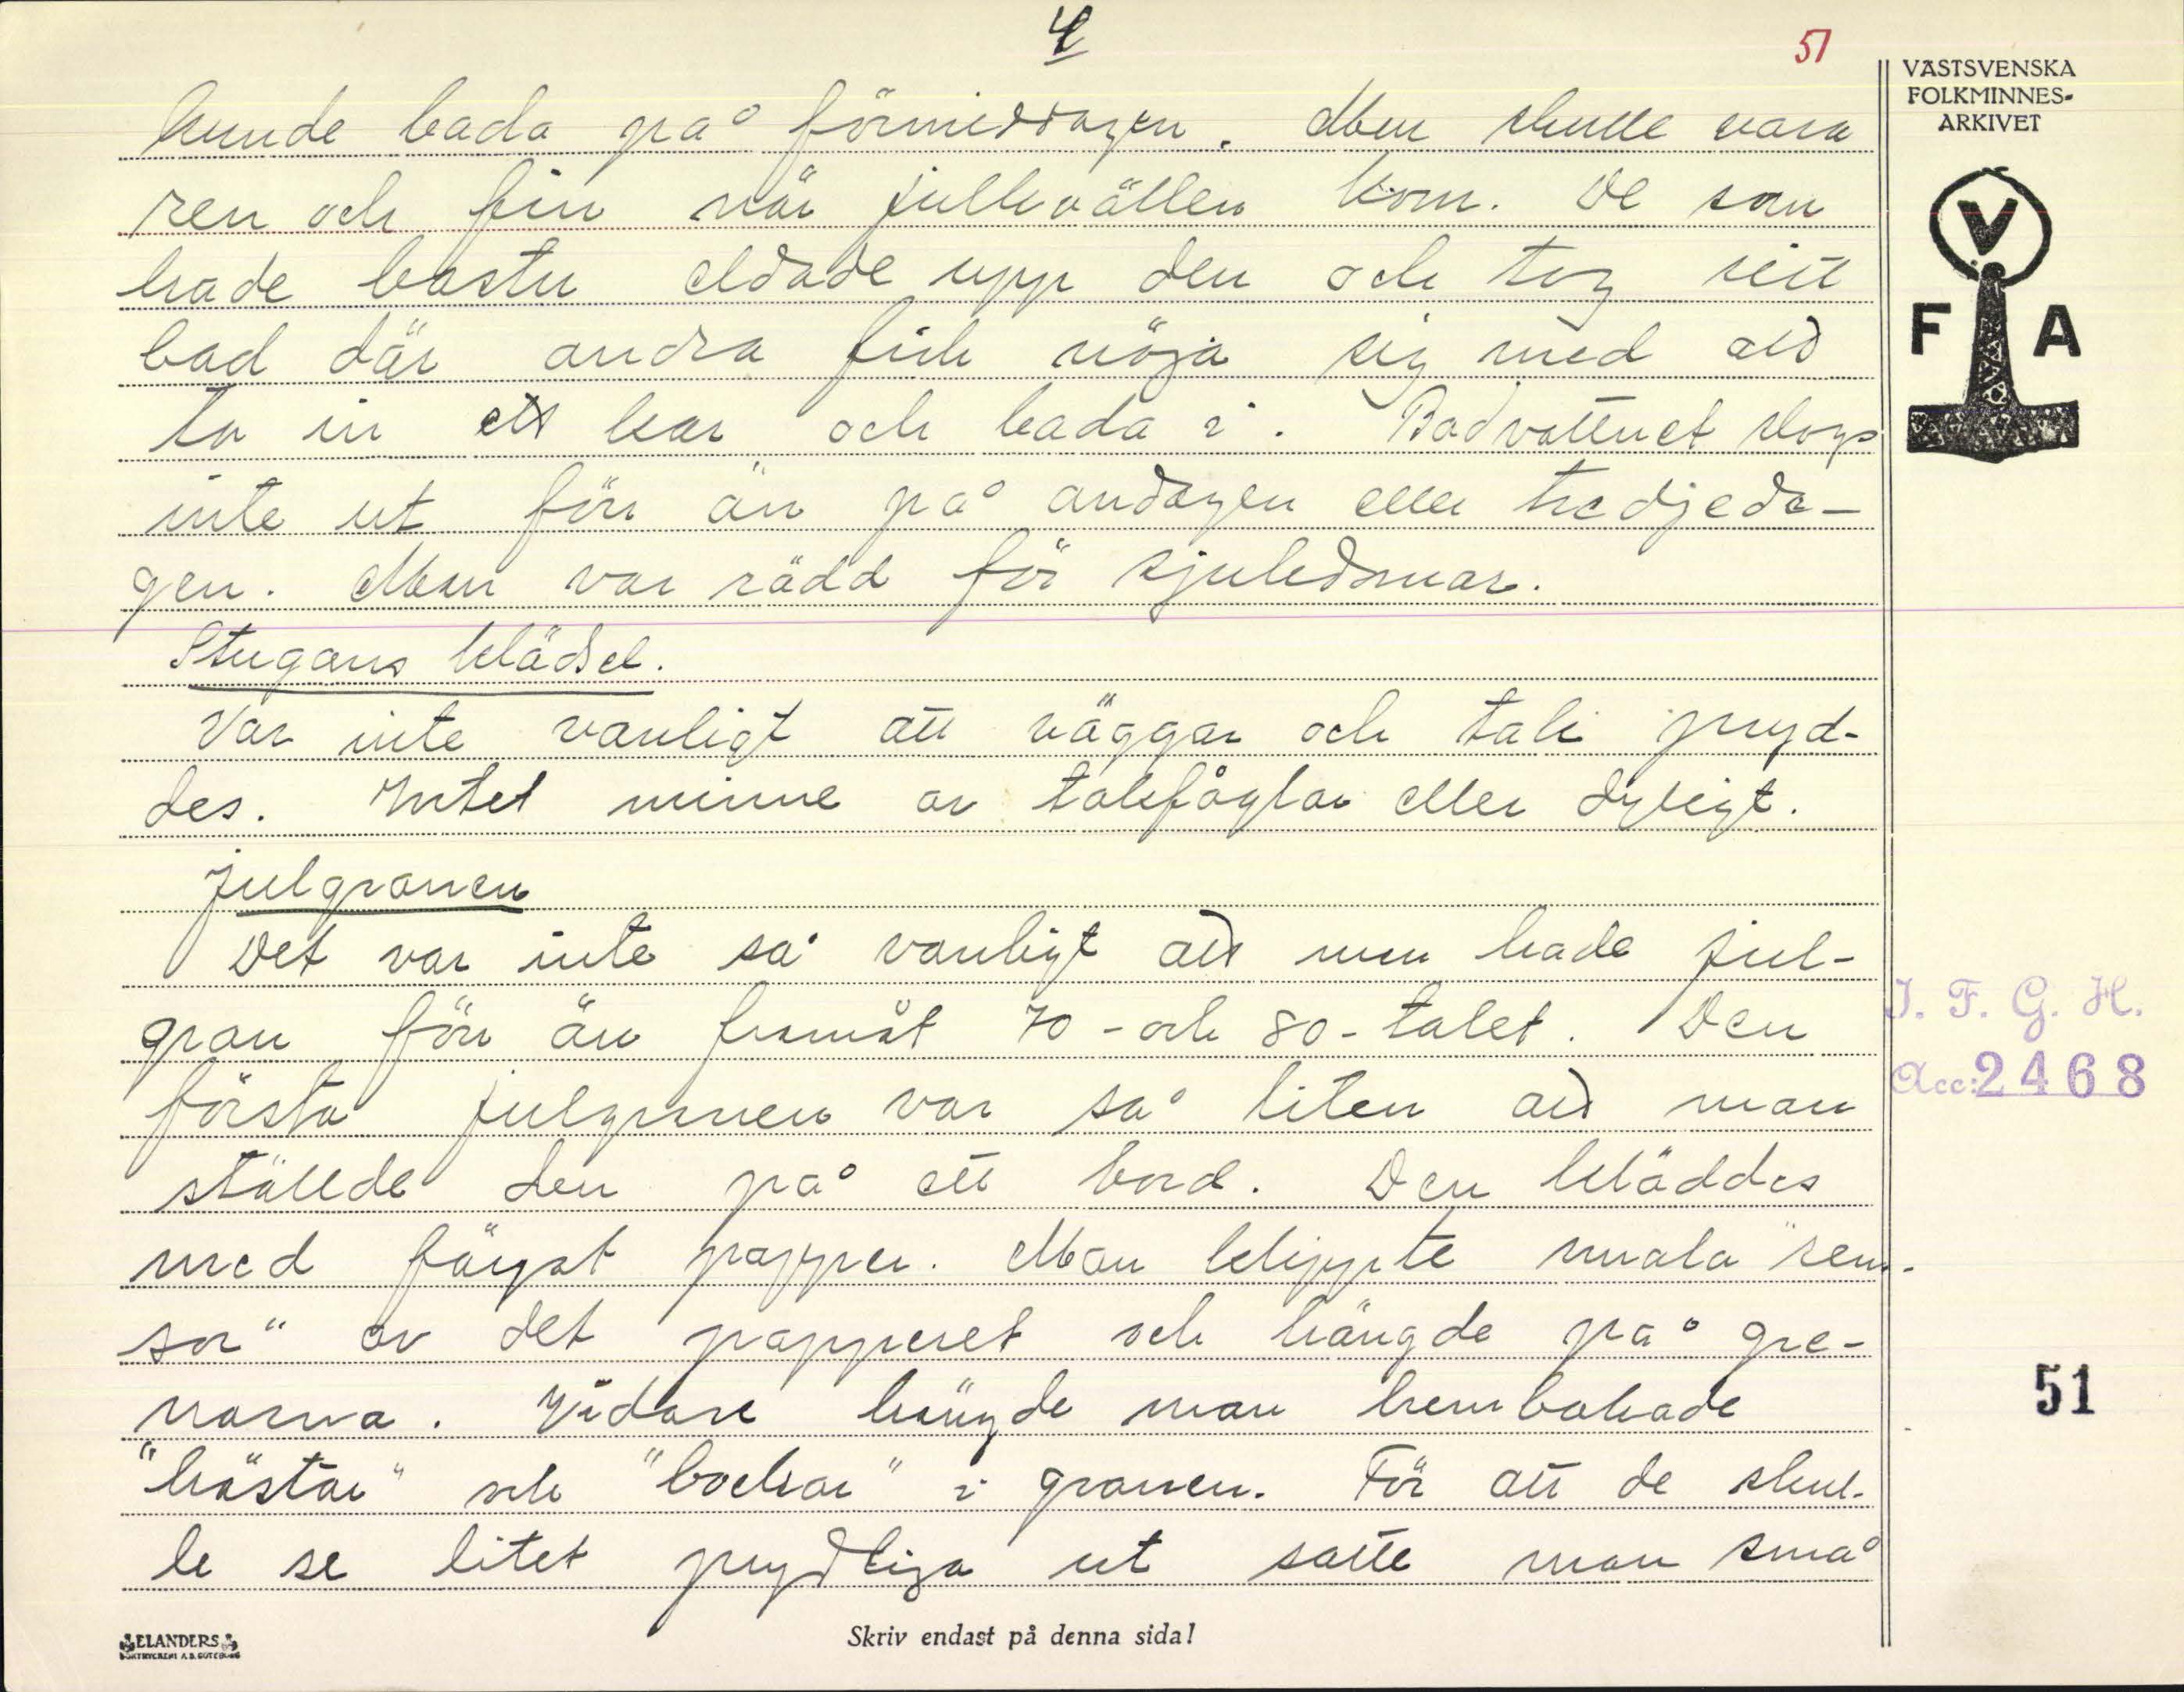 4
51
VÄSTSVENSKA
FOLKMINNES-
ARKIVET
V
F A
kunde bada på förmiddagen. Man skulle vara
ren och fin när julkvällen kom. De som
hade bastu eldade upp den och tog sitt
bad där andra fick nöja sig med att
ta in ett kar och bada i. Badvattnet slogs
inte ut förr än på andagen eller tredjeda-
gen. Man var rädd för sjukdomar.
Stugans klädsel.
Var inte vanligt att väggar och tak pryd-
des. Intet minne av takfåglar eller dyligt.
Julgranen
Det var inte så vanligt att man hade jul-
gran förr än framåt 70-och 80-talet. Den
första julgranen var så liten att man
ställde den på ett bord. Den kläddes
med färgat papper. Man klippte smala "rem-
sor" av det papperet och hängde på gre-
narna. Vidare hängde man hembakade
"hästar" och "bockar" i granen. För att de skul-
le se litet prydliga ut satte man små
I. F. G. H.
Acc: 2468
51
ELANDERS
BOKTRYCKERI A.B. GÖTEBORG
Skriv endast på denna sida!